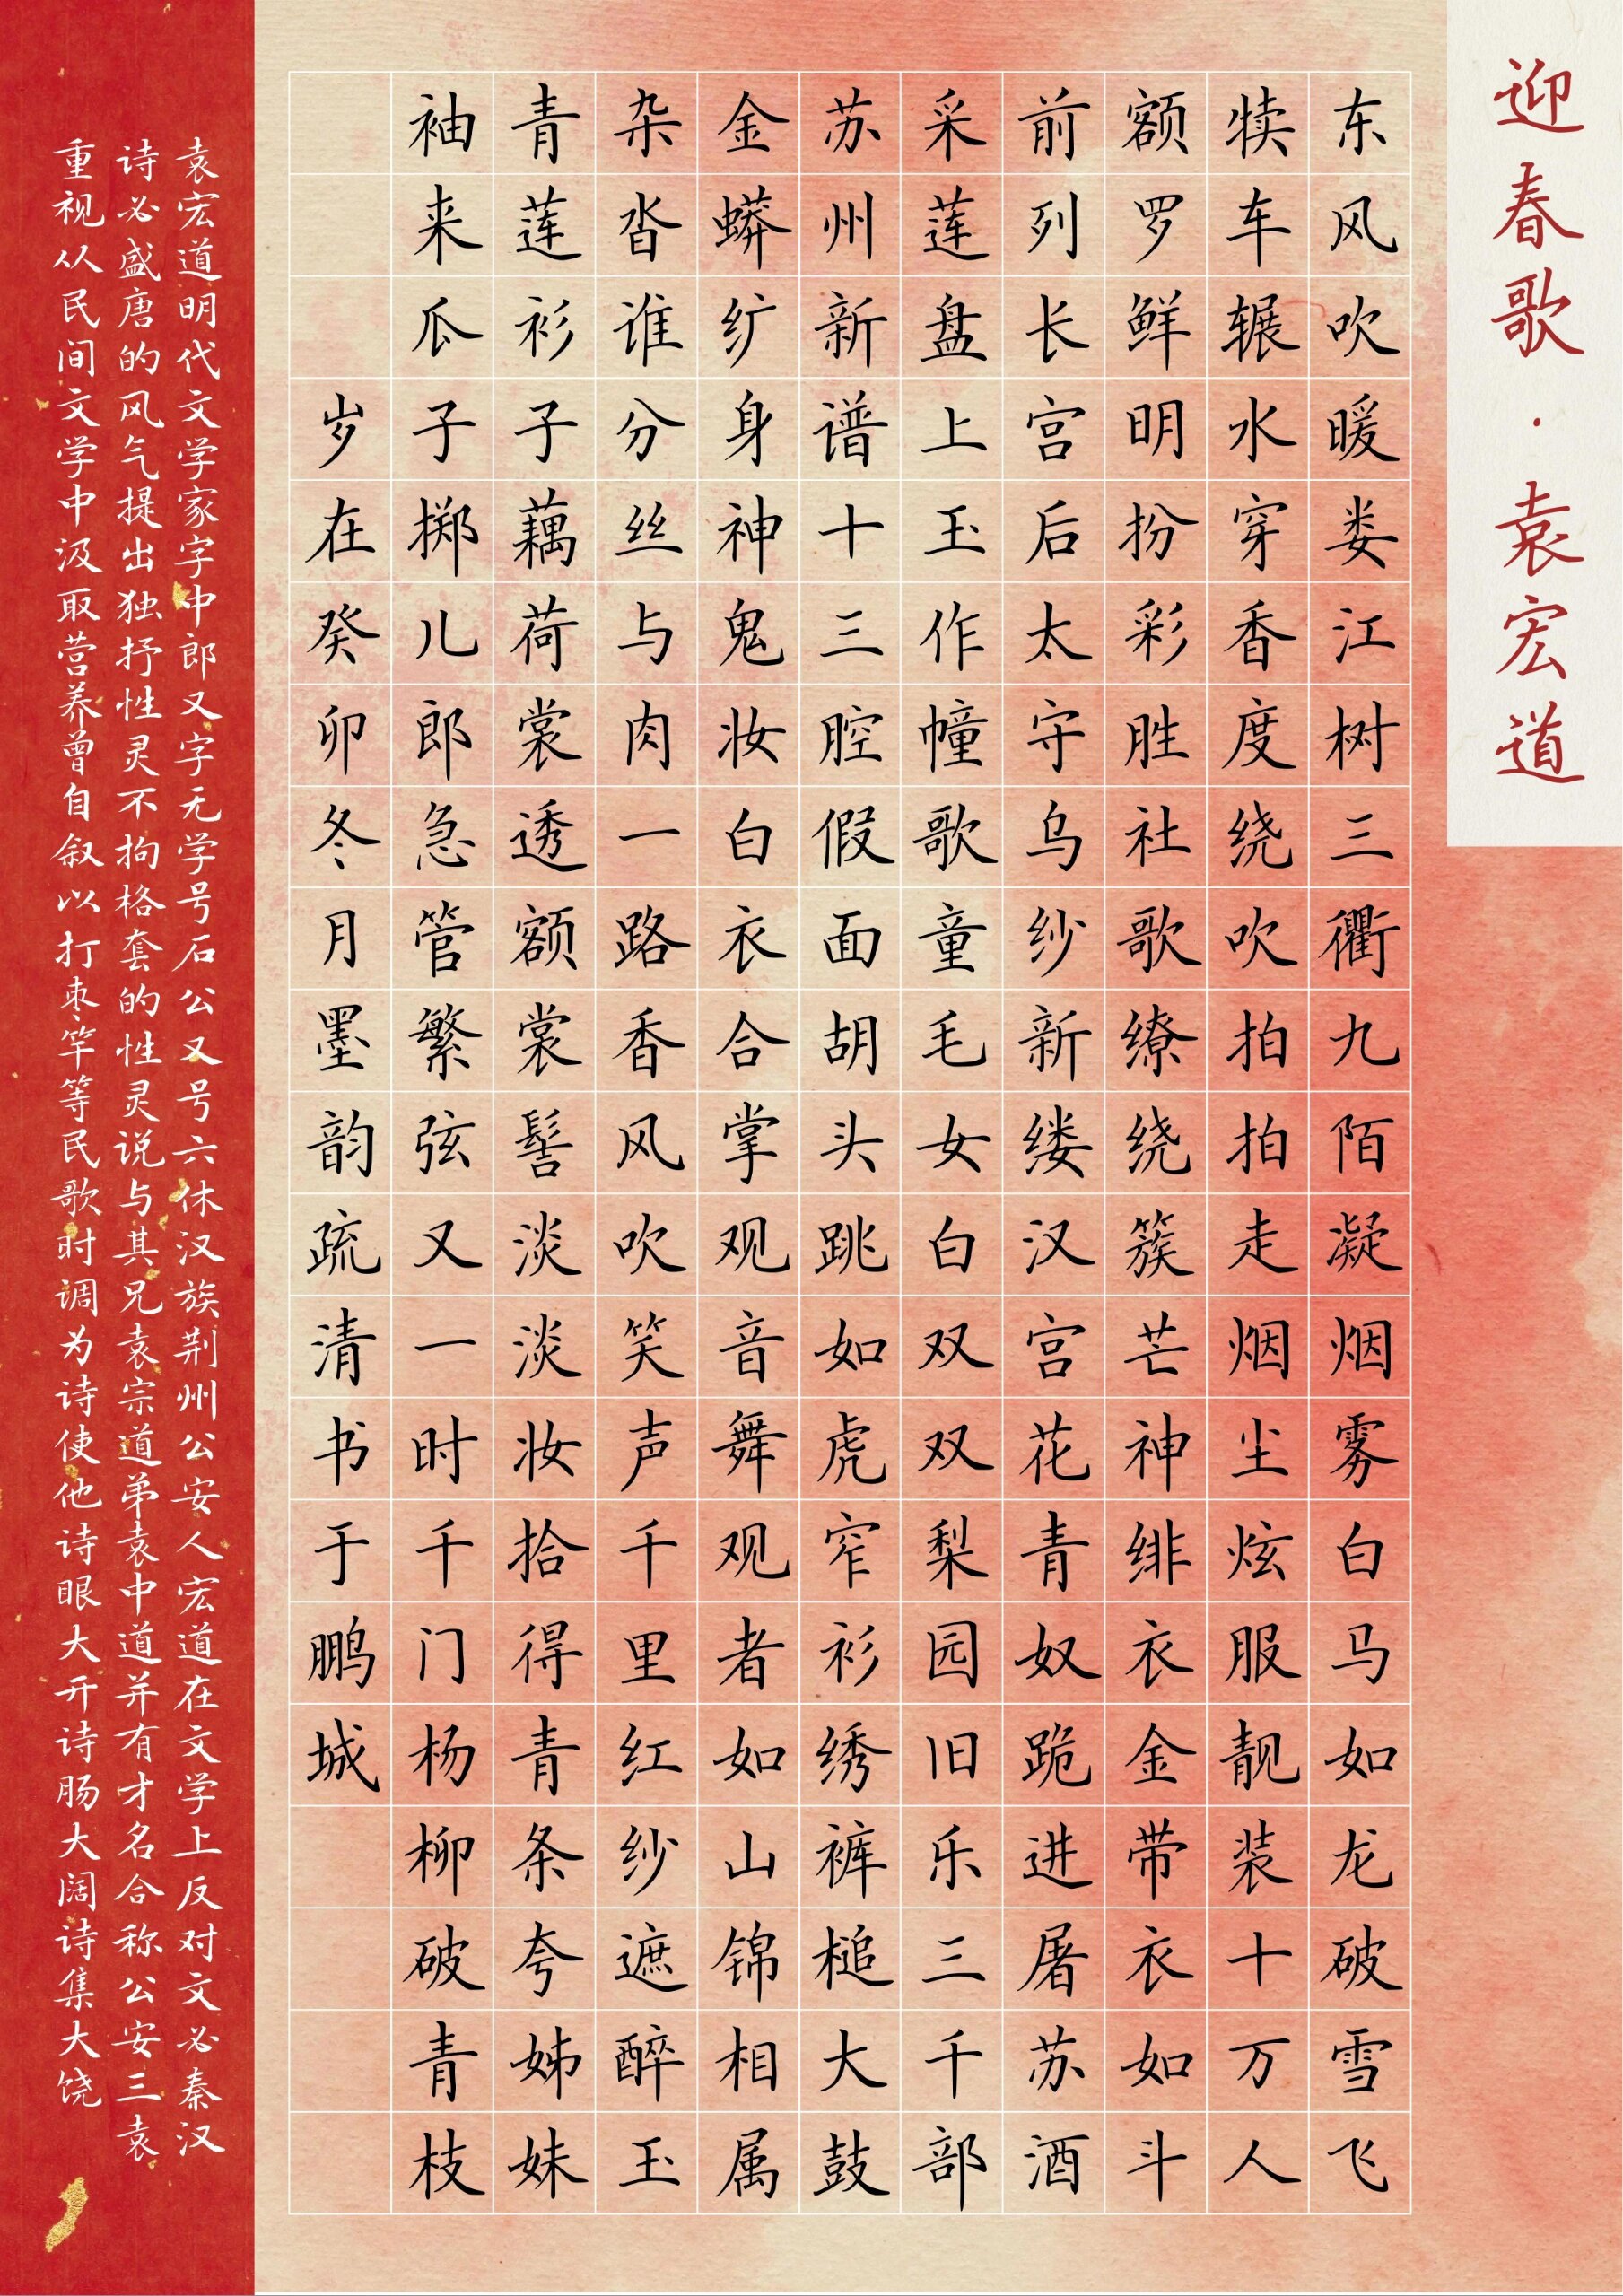 迎春歌·袁宏道
东风吹暖娄江树三衢九陌凝烟雾白马如龙破雪飞
犊车辗水穿香度绕吹拍拍走烟尘炫服靓装十万人
额罗鲜明扮彩胜社歌缭绕簇芒神绯衣金带衣如斗
前列长宫后太守乌纱新缕汉宫花青奴跪进屠苏酒
采莲盘上玉作幢歌童毛女白双双梨园旧乐三千部
苏州新谱十三腔假面胡头跳如虎窄衫绣裤槌大鼓
金蟒纩身神鬼妆白衣合掌观音舞观者如山锦相属
杂沓谁分丝与肉一路香风吹笑声千里红纱遮醉玉
青莲衫子藕荷裳透额裳髻淡淡妆拾得青条夸姊妹
袖来瓜子掷儿郎急管繁弦又一时千门杨柳破青枝
岁在癸卯冬月墨韵疏清书于鹏城
袁宏道明代文学家字中郎又字无学号石公又号六休汉族荆州公安人宏道在文学上反对文必秦汉
诗必盛唐的风气提出独抒性灵不拘格套的性灵说与其兄袁宗道弟袁中道并有才名合称公安三袁
重视从民间文学中汲取营养曾自叙以打枣竿等民歌时调为诗使他诗眼大开诗肠大阔诗集大饶